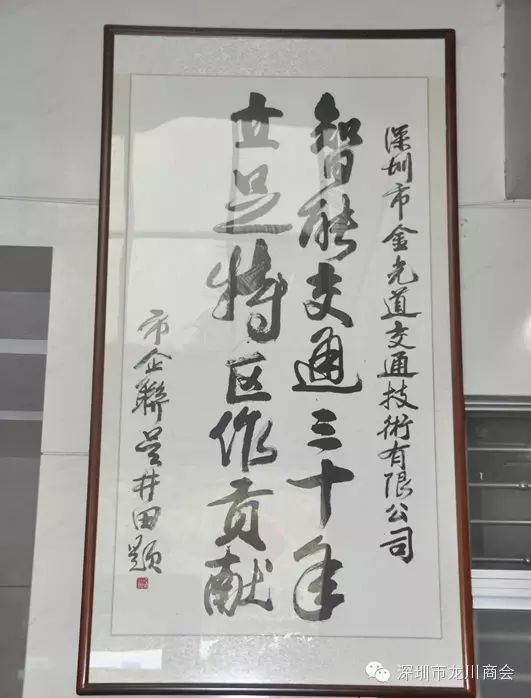 深圳市金光道交通技術有限公司
智能交通三十年
立足特区作贡献
市企聯吴井田题
深圳市龙川商会